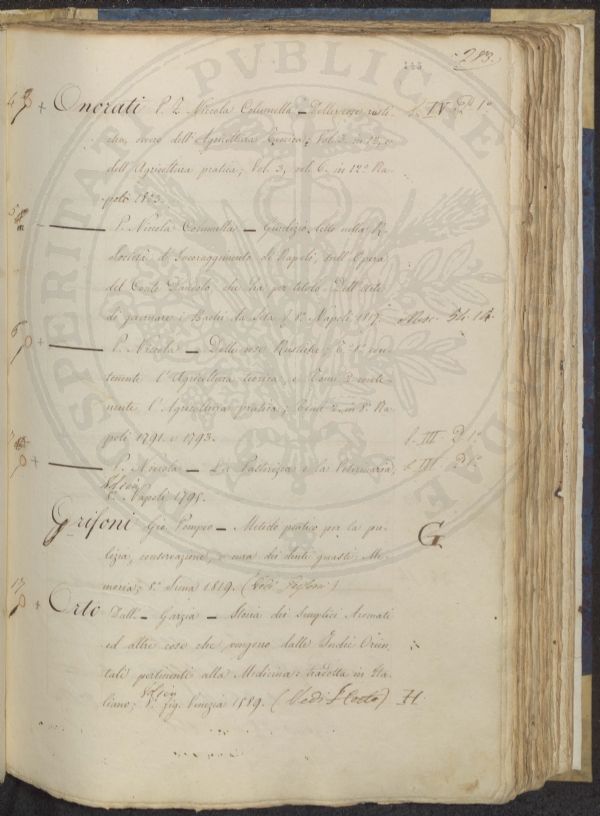 283.
145
Onorati P. D. Niccola Columella — Delle cose rusti-
che, ovvero dell'Agricoltura teorica, Vol. 3. in 12, e
dell'Agricoltura pratica, Vol. 3, vol. 6. in 12. Na-
poli 1803.
— P. Niccola Columella — Giudizio letto nella R.
Società d'Incoraggimento di Napoli, sull'Opera
del Conte Dandolo, che ha per titolo. Dell'arte
di governare i Bachi da Seta, 8.° Napoli 1817. Misc. 54. 14.
— P. Niccola — Delle cose Rustiche, T. 1.° con-
tenente l'Agricoltura teorica, e Tomo 2. conte-
nente l'Agricoltura pratica; Tomi 2. in 8.° Na-
poli 1791. e 1793.
— P. Niccola — La Pastorizia e la Veterinaria,
8.° Napoli 1798.
Grifoni Gio. Pompeo — Metodo pratico per la pu-
lizia, conservazione, e cura dei denti guasti, Me-
moria, 8.° Siena 1819. G
17 Orto Dall. — Garzia — Storia dei Semplici Aromati
ed altre cose che vengono dalle Indie Orien-
tali pertinenti alla Medicina: tradotta in Ita-
liano, 8.° fig. Venezia 1589. H.
PUBLICAE
PROSPERITATI